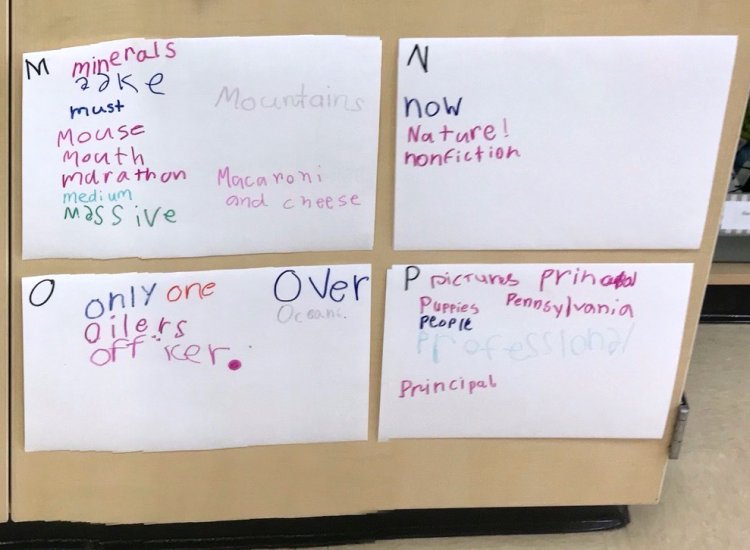 M minerals
must
Mouse
Mouth
marathon
medium
massive
Mountains
Macaroni
and cheese
N
now
Nature!
nonfiction
O
only one
Oilers
officer.
Over
Oceans.
P pictures
Puppies Pennsylvania
People
Professional
Principal